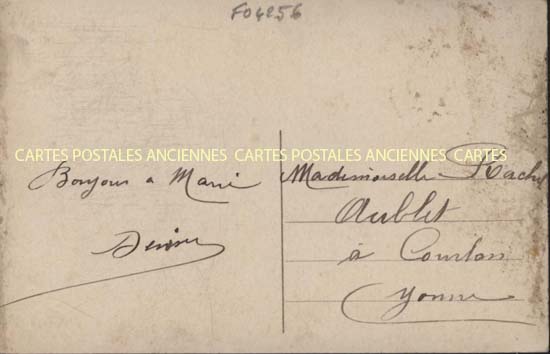 F04256
CARTES POSTALES ANCIENNES CARTES POSTALES ANCIENNES CARTES
Bonjour a Marie
Mademoiselle Rachel
Aublet
à Courlon
Yonne